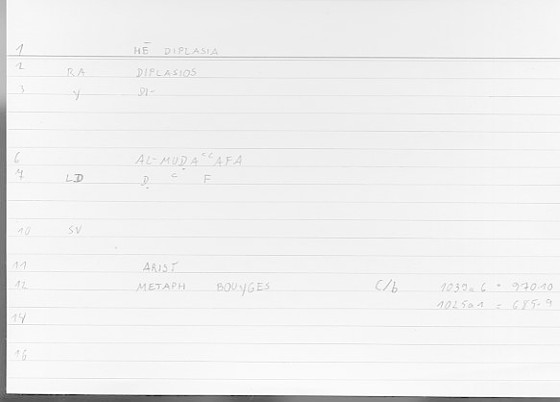 1 HĒ DIPLASIA
2 RA DIPLASIOS
3 Y DI-
6 AL-MUḌAʿʿAFA
7 LD Ḍ ʿ F
10 SV
11 ARIST
12 METAPH BOUYGES C/b 1039a6 = 97010
1025a1 = 685.9
14
16